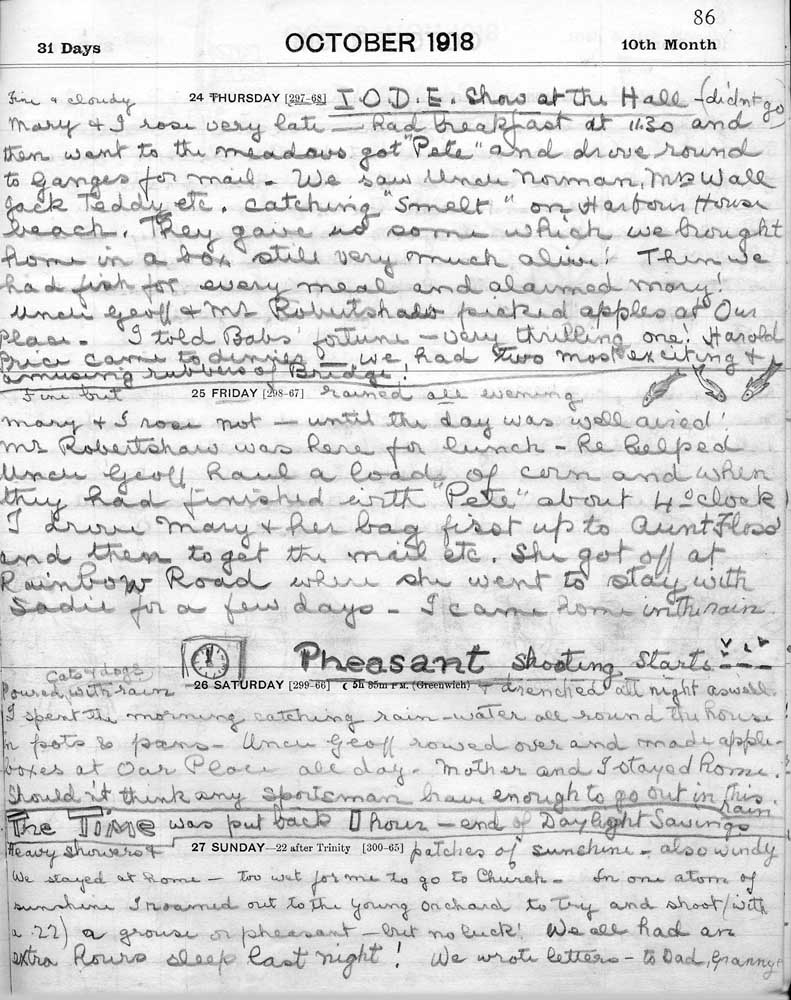 86
31 Days OCTOBER 1918 10th Month
Fine & cloudy 24 THURSDAY [297-68] I.O.D.E. Show at the Hall - (didn't go)
Mary & I rose very late — had breakfast at 11.30 and
then went to the meadows got "Pete" and drove round
to Ganges for mail - We saw Uncle Norman, Mrs Wall
Jack Teddy etc. catching "Smelt" on Harbour House
beach. They gave us some which we brought
home in a box still very much alive! Then we
had fish for every meal and alarmed Mary!
Uncle Geoff & Mr Robertshaw picked apples at Our
Place. I told Babs' fortune - very thrilling one! Harold
Price came to dinner — we had two most exciting &
amusing rubbers of Bridge!
Fine but 25 FRIDAY [298-67] rained all evening
Mary & I rose not — until the day was well aired!
Mr Robertshaw was here for lunch - he helped
Uncle Geoff haul a load of corn and when
they had finished with "Pete" about 4 o'clock
I drove Mary & her bag first up to Aunt Floss'
and then to get the mail etc. She got off at
Rainbow Road where she went to stay with
Sadie for a few days - I came home in the rain.
Pheasant shooting starts
cats & dogs
Poured with rain 26 SATURDAY [299-66] ☾ 5h 35m P.M. (Greenwich) & drenched all night as well.
I spent the morning catching rain-water all round the house
in pots & pans - Uncle Geoff rowed over and made apple-
boxes at Our Place all day. Mother and I stayed home.
Should it think any sportsman brave enough to go out in this
rain
The TIME was put back 1 hour - end of Daylight Savings
Heavy showers & 27 SUNDAY—22 after Trinity [300-65] patches of sunshine - also windy
We stayed at home - too wet for me to go to Church - In one atom of
sunshine I roamed out to the young orchard to try and shoot (with
a .22) a grouse or pheasant - but no luck! We all had an
extra hours sleep last night! We wrote letters - to Dad, Granny